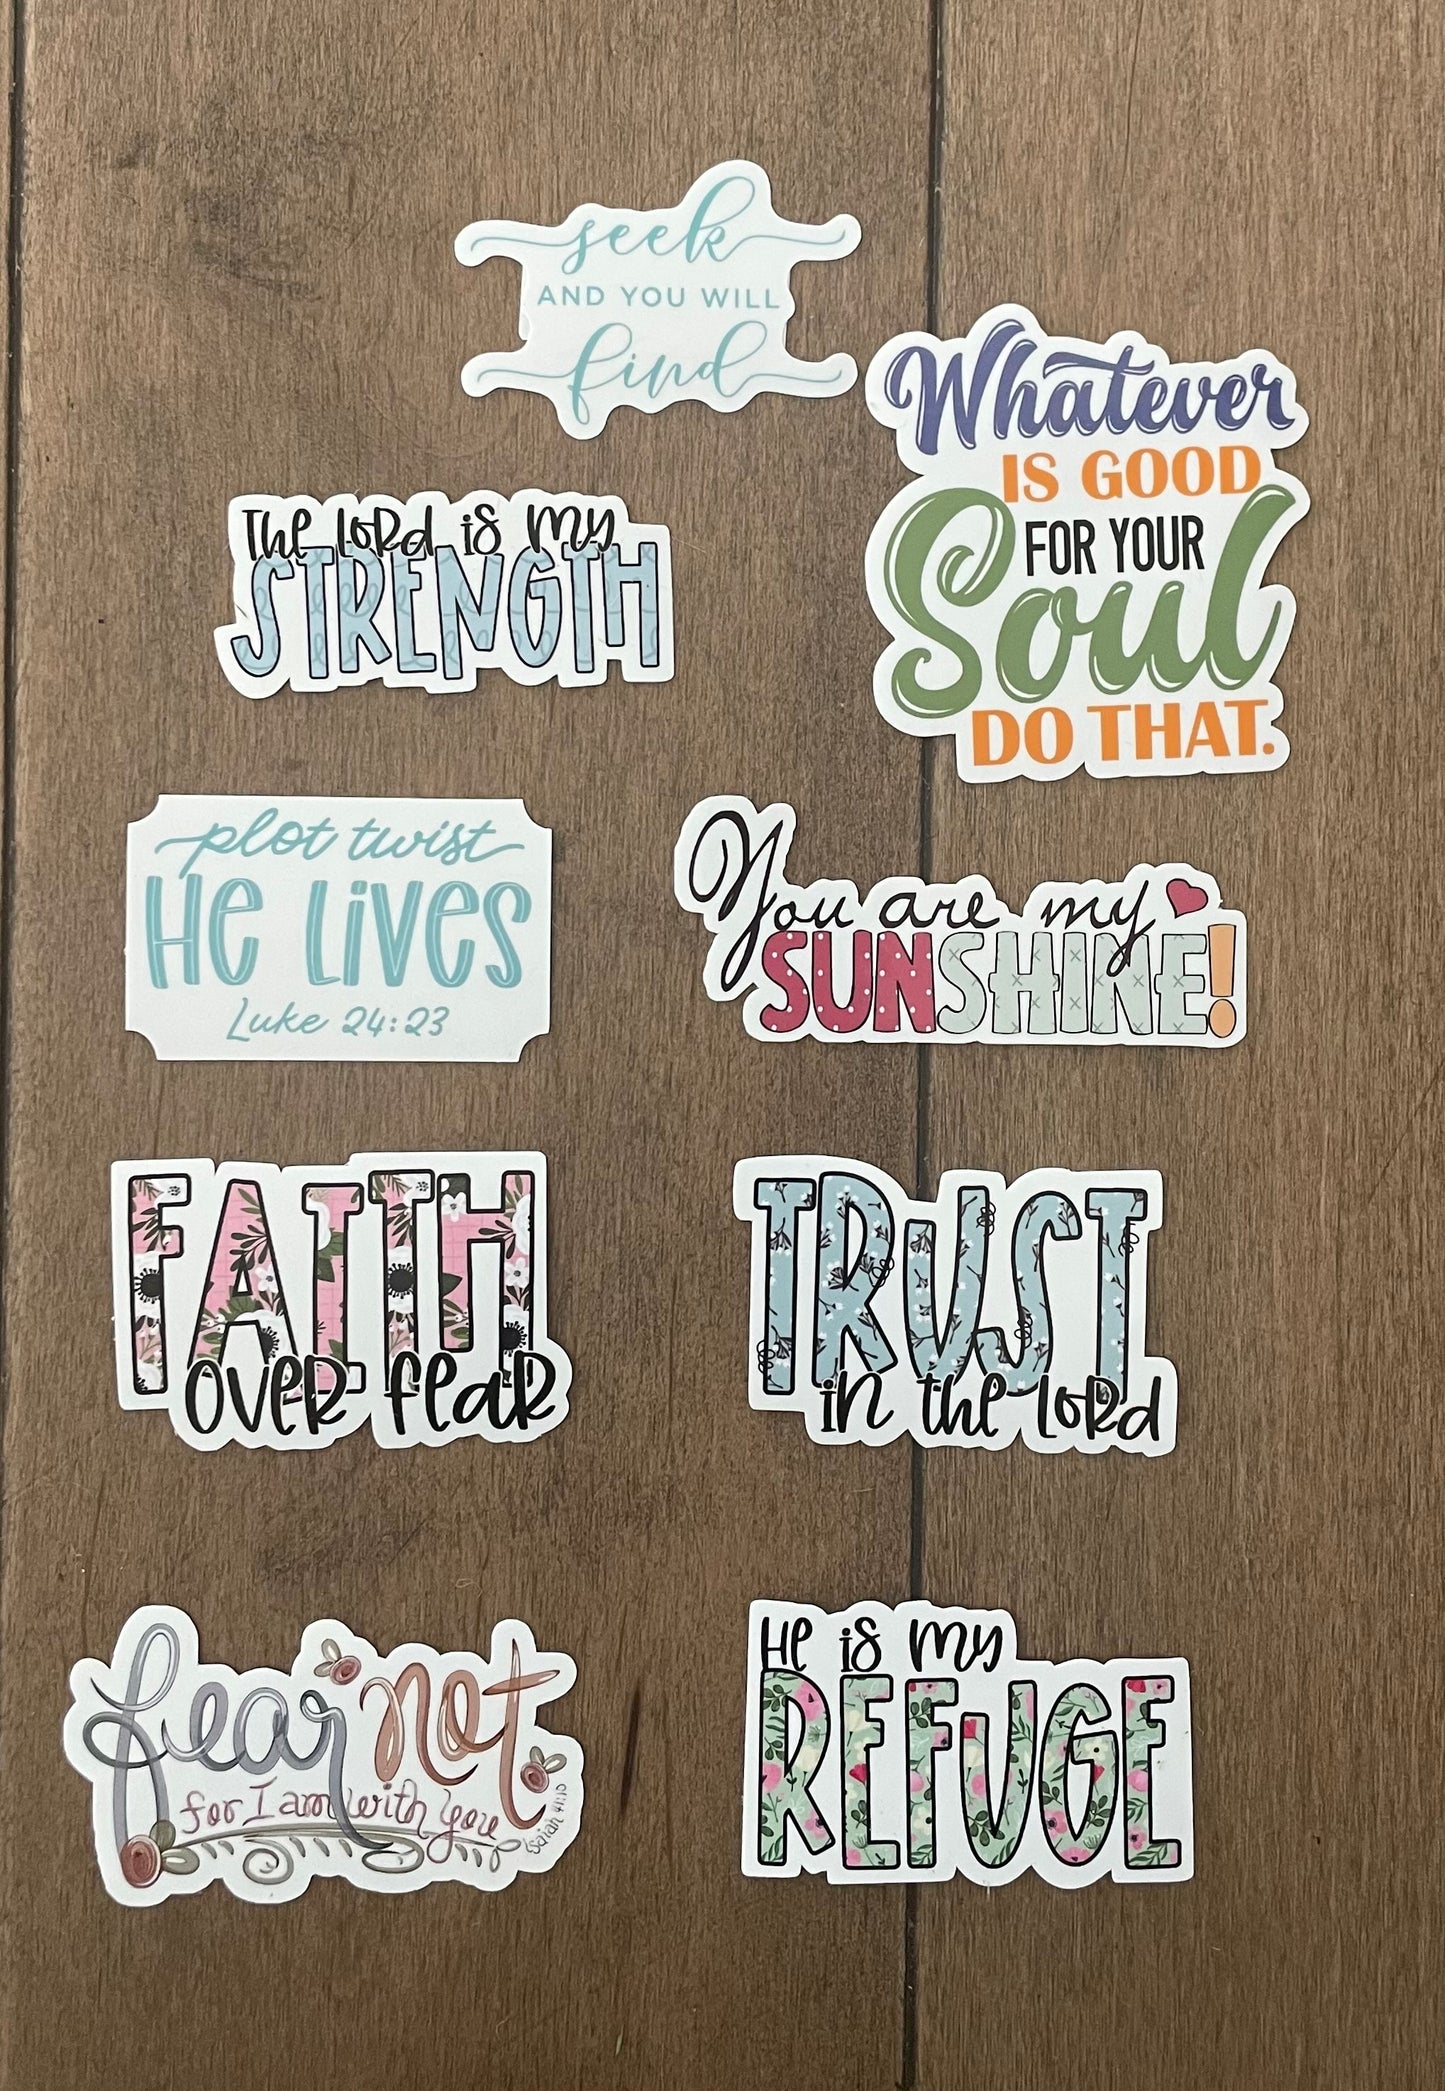 seek
AND YOU WILL
find
Whatever
IS GOOD
FOR YOUR
Soul
DO THAT.
The Lord is my
STRENGTH
plot twist
He Lives
Luke 24:23
You are my
SUNSHINE!
FAITH
over fear
TRUST
in the Lord
fear not
for I am with you
Isaiah 41:10
He is my
REFUGE